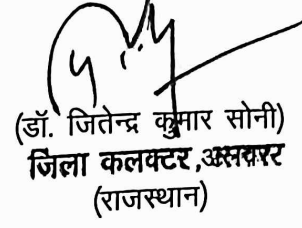 (डॉ. जितेन्द्र कुमार सोनी)
जिला कलक्टर,
(राजस्थान)